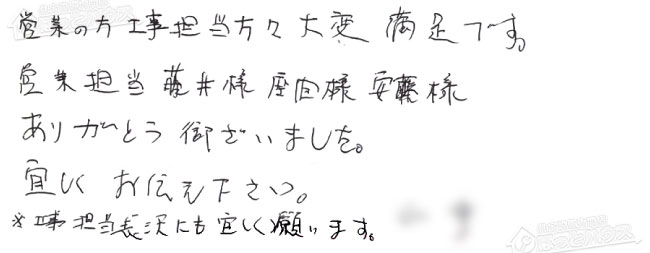 営業の方工事担当方々大変満足です。
営業担当藤井様座間様安藤様
ありがとう御ざいました。
宜しくお伝え下さい。
※工事担当長沢にも宜しく願います。